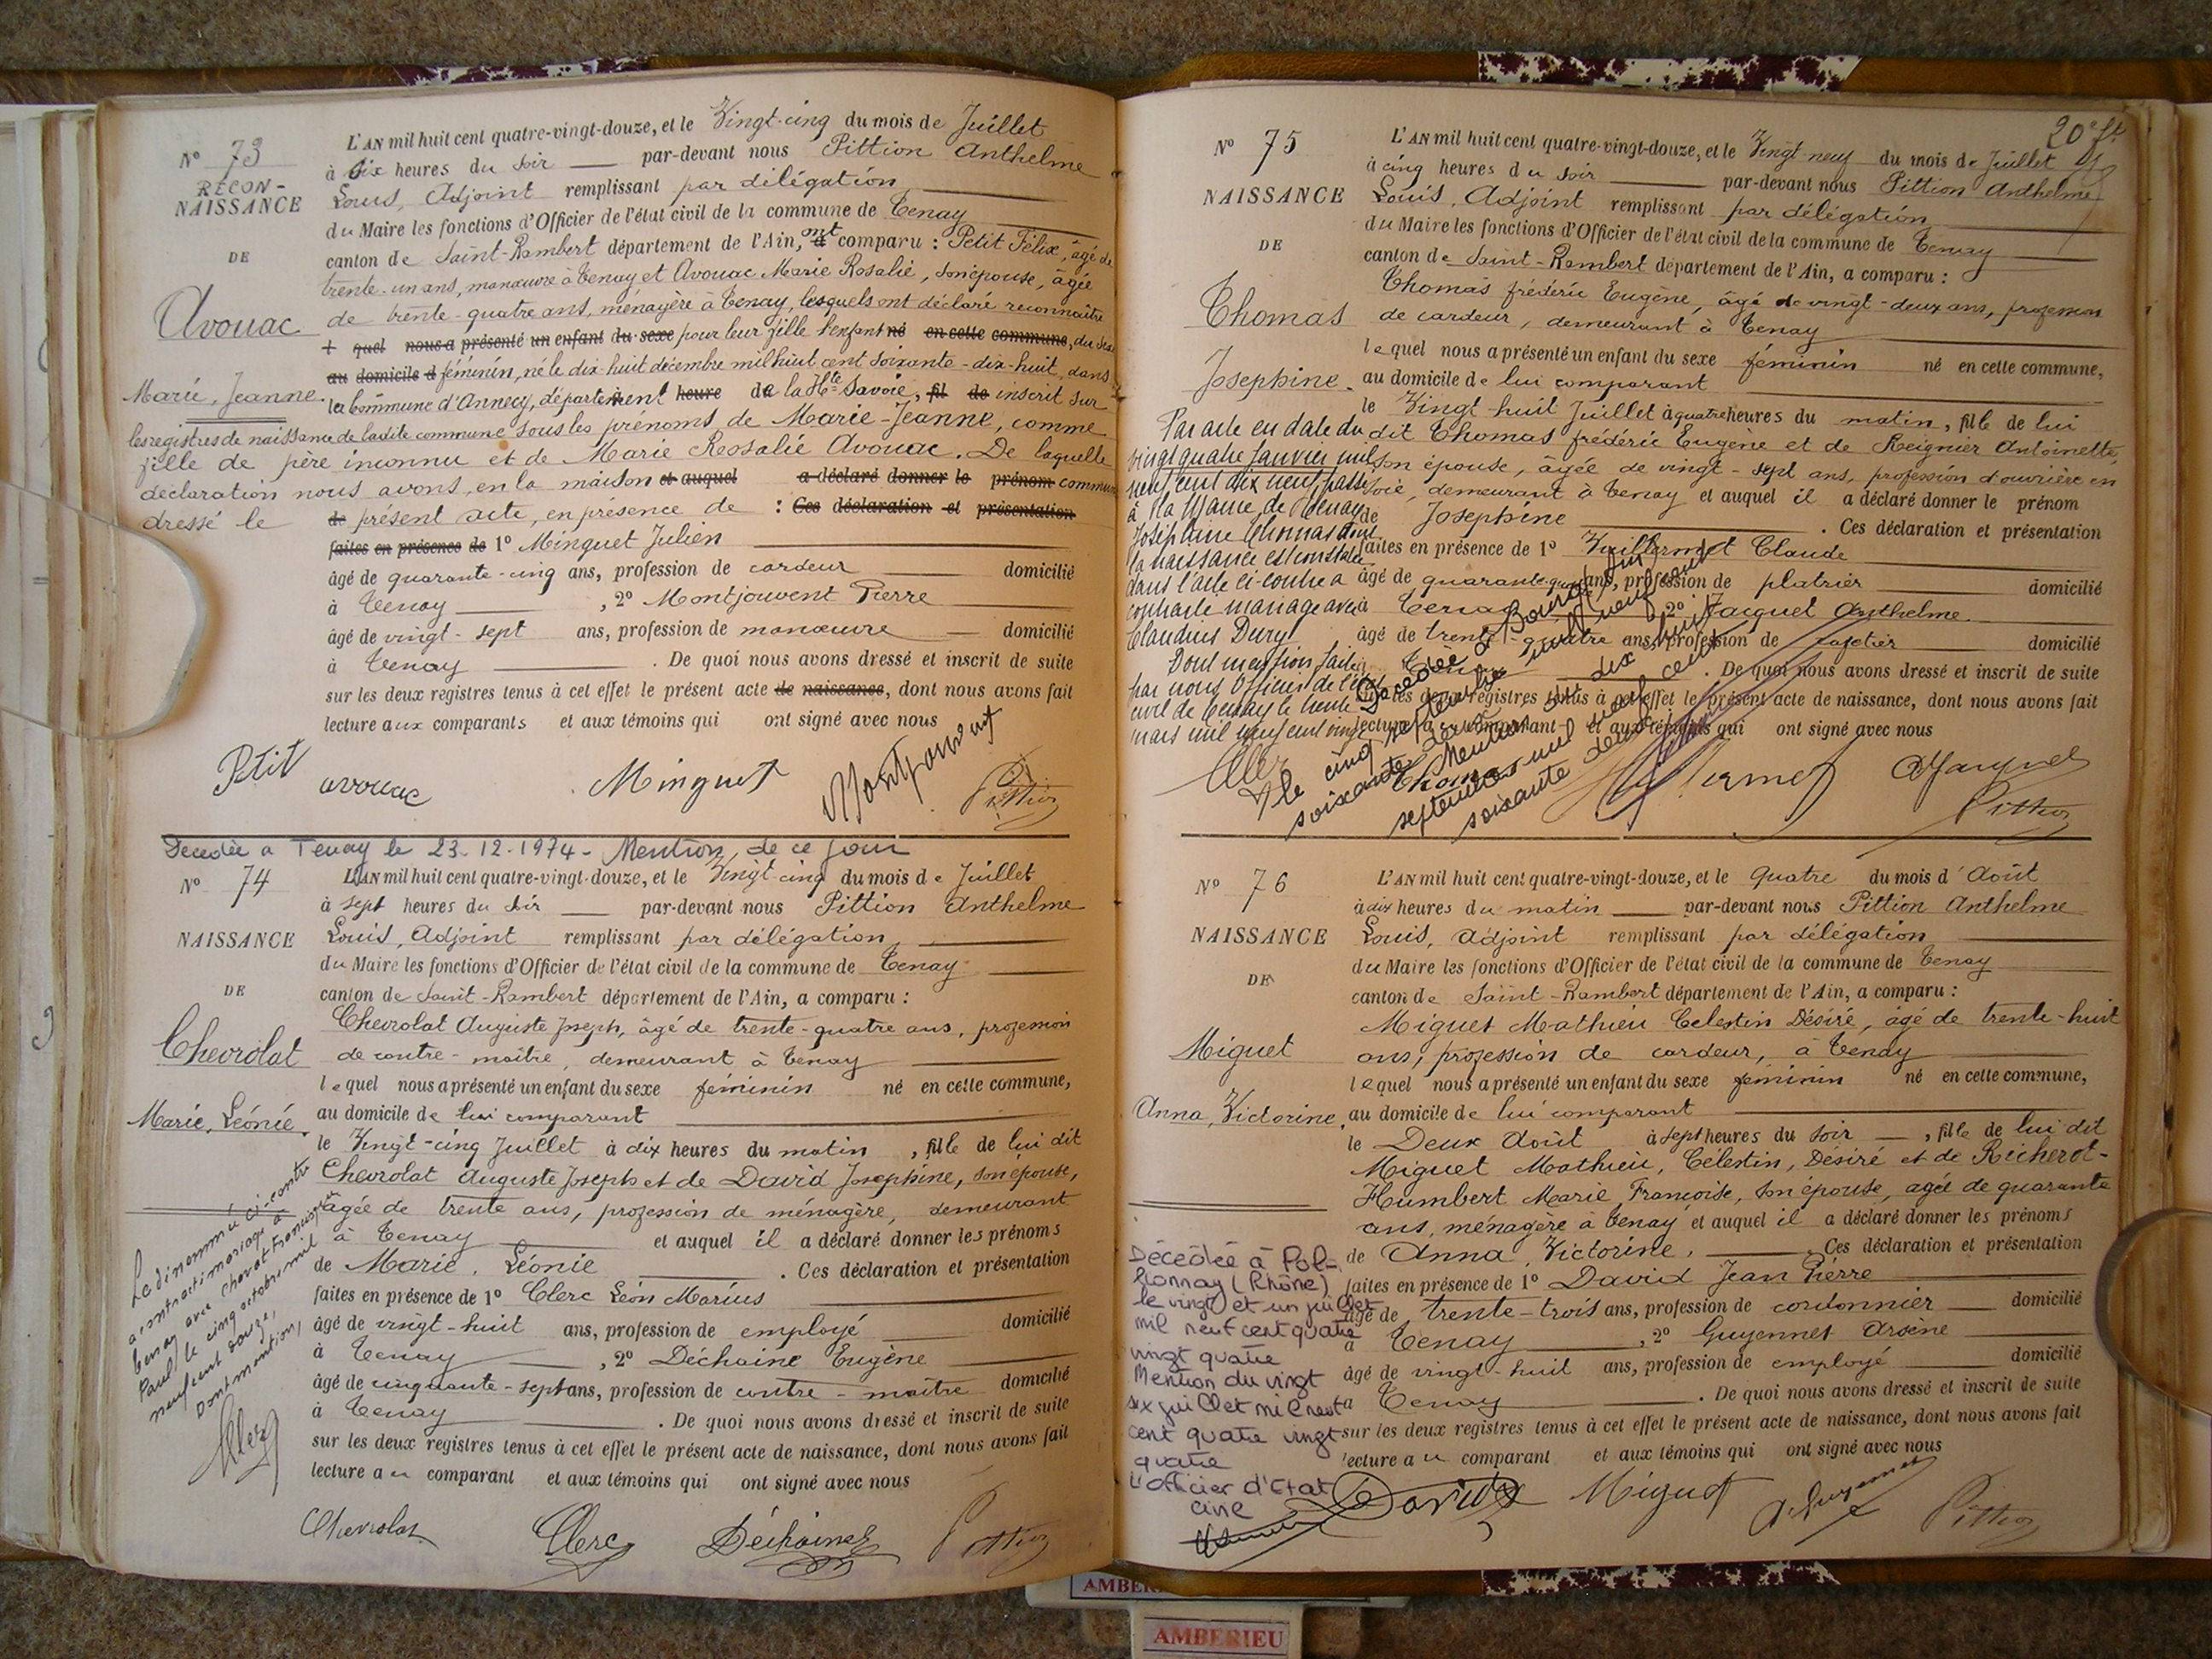 N° 73
RECON-
NAISSANCE
DE
Avouac
Marie, Jeanne.
L'AN mil huit cent quatre-vingt-douze, et le Vingt-cinq du mois de Juillet
à six heures du soir — par-devant nous Pittion Anthelme
Louis, Adjoint remplissant par délégation
du Maire les fonctions d'Officier de l'état civil de la commune de Tenay
canton de Saint-Rambert département de l'Ain, ont comparu : Petit Félix, âgé de
trente-un ans, manœuvre à Tenay et Avouac Marie Rosalie, son épouse, âgée
de trente-quatre ans, ménagère à Tenay, lesquels ont déclaré reconnaître
quel nous a présenté un enfant du sexe pour leur fille l'enfant né en cette commune, du sexe
au domicile d féminin, né le dix huit décembre mil huit cent soixante-dix-huit, dans
la commune d'Annecy, département heure de la Hte Savoie, fil de inscrit sur
les registres de naissance de ladite commune sous les prénoms de Marie-Jeanne, comme
fille de père inconnu et de Marie Rosalie Avouac. De laquelle
déclaration nous avons, en la maison et auquel a déclaré donner le prénom commune
dressé le de présent acte, en présence de : Ces déclaration et présentation
faites en présence de 1° Minguet Julien
âgé de quarante-cinq ans, profession de cardeur domicilié
à Tenay , 2° Montjouvent Pierre
âgé de vingt-sept ans, profession de manœuvre — domicilié
à Tenay . De quoi nous avons dressé et inscrit de suite
sur les deux registres tenus à cet effet le présent acte de naissance, dont nous avons fait
lecture aux comparants et aux témoins qui ont signé avec nous
Petit avouac Minguet Montjouvent Pittion
Décédée à Tenay le 23-12-1974 - Mention de ce jour
N° 74
NAISSANCE
DE
Chevrolat
Marie, Léonie.
L'AN mil huit cent quatre-vingt-douze, et le Vingt-cinq du mois de Juillet
à sept heures du soir — par-devant nous Pittion Anthelme
Louis, Adjoint remplissant par délégation
du Maire les fonctions d'Officier de l'état civil de la commune de Tenay
canton de Saint-Rambert département de l'Ain, a comparu :
Chevrolat Auguste Joseph, âgé de trente-quatre ans, profession
de contre-maître, demeurant à Tenay
lequel nous a présenté un enfant du sexe féminin né en cette commune,
au domicile de lui comparant
le Vingt-cinq Juillet à dix heures du matin , fille de lui dit
Chevrolat Auguste Joseph et de David Josephine, son épouse,
âgée de trente ans, profession de ménagère, demeurant
à Tenay et auquel il a déclaré donner les prénoms
de Marie, Léonie . Ces déclaration et présentation
faites en présence de 1° Clerc Léon Marius
âgé de vingt-huit ans, profession de employé domicilié
à Tenay , 2° Déchaine Eugène
âgé de cinquante-sept ans, profession de contre-maître domicilié
à Tenay . De quoi nous avons dressé et inscrit de suite
sur les deux registres tenus à cet effet le présent acte de naissance, dont nous avons fait
lecture au comparant et aux témoins qui ont signé avec nous
La dénommée ci-contre
a contracté mariage à
Tenay avec Chevat François
Paul le cinq octobre mil
neuf cent douze,
Dont mention,
Chevrolat Clerc Déchaine Pittion
20e ft
N° 75
NAISSANCE
DE
Thomas
Josephine.
L'AN mil huit cent quatre-vingt-douze, et le Vingt neuf du mois de Juillet
à cinq heures du soir — par-devant nous Pittion Anthelme
Louis, Adjoint remplissant par délégation
du Maire les fonctions d'Officier de l'état civil de la commune de Tenay
canton de Saint-Rambert département de l'Ain, a comparu :
Thomas frédéric Eugène, âgé de vingt-deux ans, profession
de cardeur, demeurant à Tenay
lequel nous a présenté un enfant du sexe féminin né en cette commune,
au domicile de lui comparant
le Vingt huit Juillet à quatre heures du matin, fille de lui
dit Thomas frédéric Eugène et de Reignier Antoinette,
son épouse, âgée de vingt-sept ans, profession d'ouvrière en
soie, demeurant à Tenay et auquel il a déclaré donner le prénom
de Josephine . Ces déclaration et présentation
faites en présence de 1° Vuillermet Claude
âgé de quarante-quatre ans, profession de platrier domicilié
à Tenay , 2° Jacquet Anthelme
âgé de trente-quatre ans, profession de cafetier domicilié
à Tenay . De quoi nous avons dressé et inscrit de suite
sur les deux registres tenus à cet effet le présent acte de naissance, dont nous avons fait
lecture au comparant et aux témoins qui ont signé avec nous
Par acte en date du
vingt quatre Janvier mil
neuf cent dix neuf, passé
à la Mairie de Tenay
Joséphine Thomas dont
la naissance est constatée
dans l'acte ci-contre a
contracté mariage avec
Claudius Dury
Dont mention faite
par nous Officier de l'état
civil de Tenay le trente
mars mil neuf cent vingt
Décédée à Bourg (Ain)
le cinq septembre mil neuf cent
soixante deux
Mention du dix huit
septembre mil neuf cent
soixante deux
Thomas Vuillermet A Jacquet Pittion
N° 76
NAISSANCE
DE
Miguet
Anna, Victorine.
L'AN mil huit cent quatre-vingt-douze, et le quatre du mois d'Août
à dix heures du matin — par-devant nous Pittion Anthelme
Louis, Adjoint remplissant par délégation
du Maire les fonctions d'Officier de l'état civil de la commune de Tenay
canton de Saint-Rambert département de l'Ain, a comparu :
Miguet Mathieu Celestin Désiré, âgé de trente-huit
ans, profession de cardeur, à Tenay
lequel nous a présenté un enfant du sexe féminin né en cette commune,
au domicile de lui comparant
le Deux Août à sept heures du soir — , fille de lui dit
Miguet Mathieu, Célestin, Désiré et de Richerot-
Humbert Marie Françoise, son épouse, agée de quarante
ans, ménagère à Tenay et auquel il a déclaré donner les prénoms
de Anna, Victorine. Ces déclaration et présentation
faites en présence de 1° David Jean Pierre
âgé de trente-trois ans, profession de cordonnier — domicilié
à Tenay , 2° Guyennet Arsène
âgé de vingt-huit ans, profession de employé domicilié
à Tenay . De quoi nous avons dressé et inscrit de suite
sur les deux registres tenus à cet effet le présent acte de naissance, dont nous avons fait
lecture au comparant et aux témoins qui ont signé avec nous
Décédée à Pol-
lionnay (Rhône)
le vingt et un juillet
mil neuf cent quatre
vingt quatre
Mention du vingt
six juillet mil neuf
cent quatre vingt
quatre
L'officier d'Etat
civil
David Miguet A. Guyennet Pittion
AMBERIEU